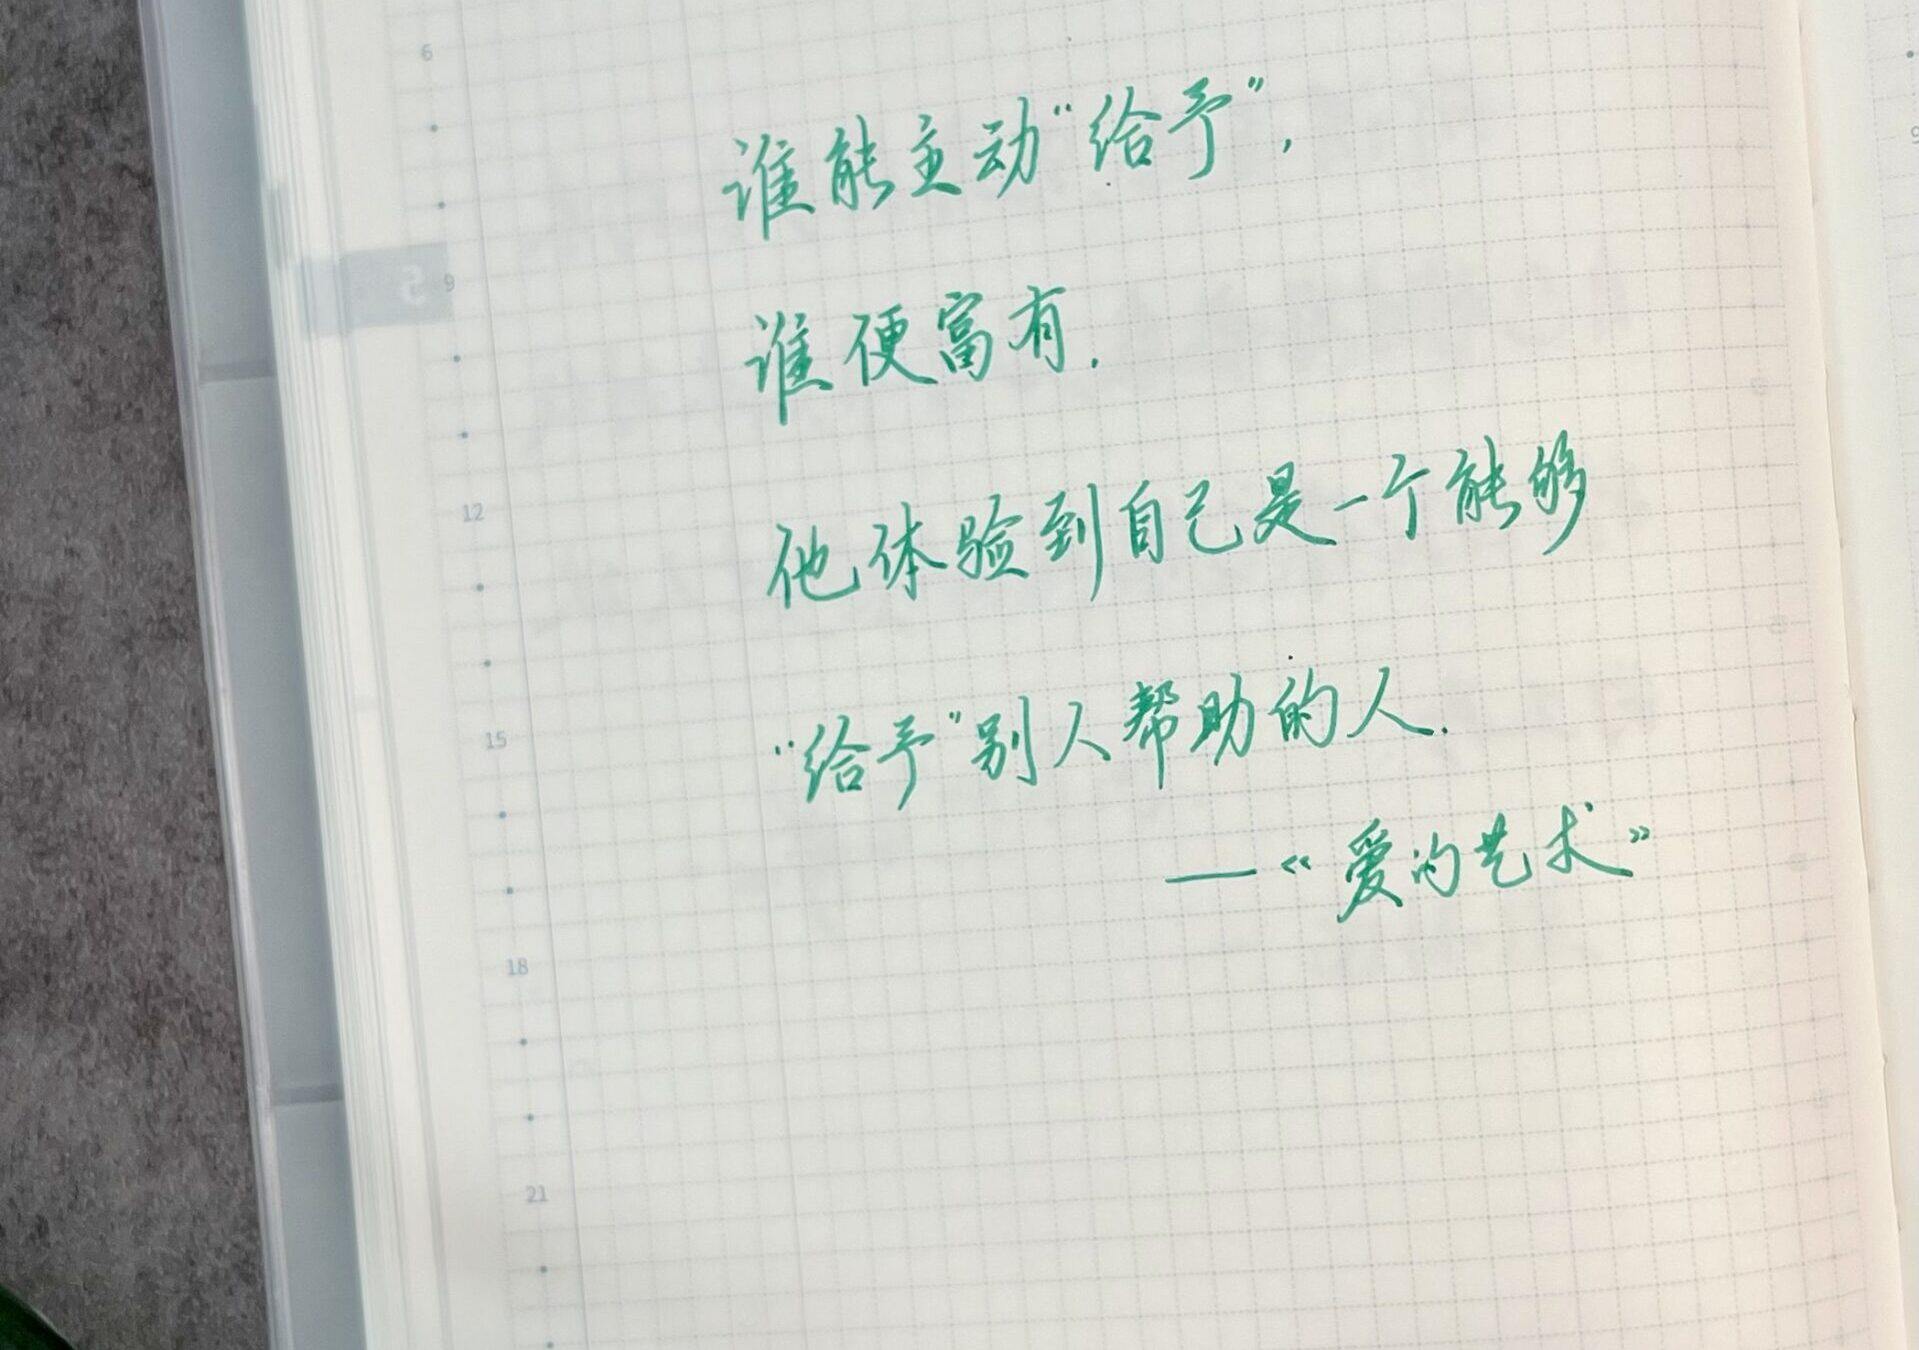 6
谁能主动“给予”，
9
谁便富有.
12
他体验到自己是一个能够
15
“给予”别人帮助的人.
—《爱的艺术》
18
21